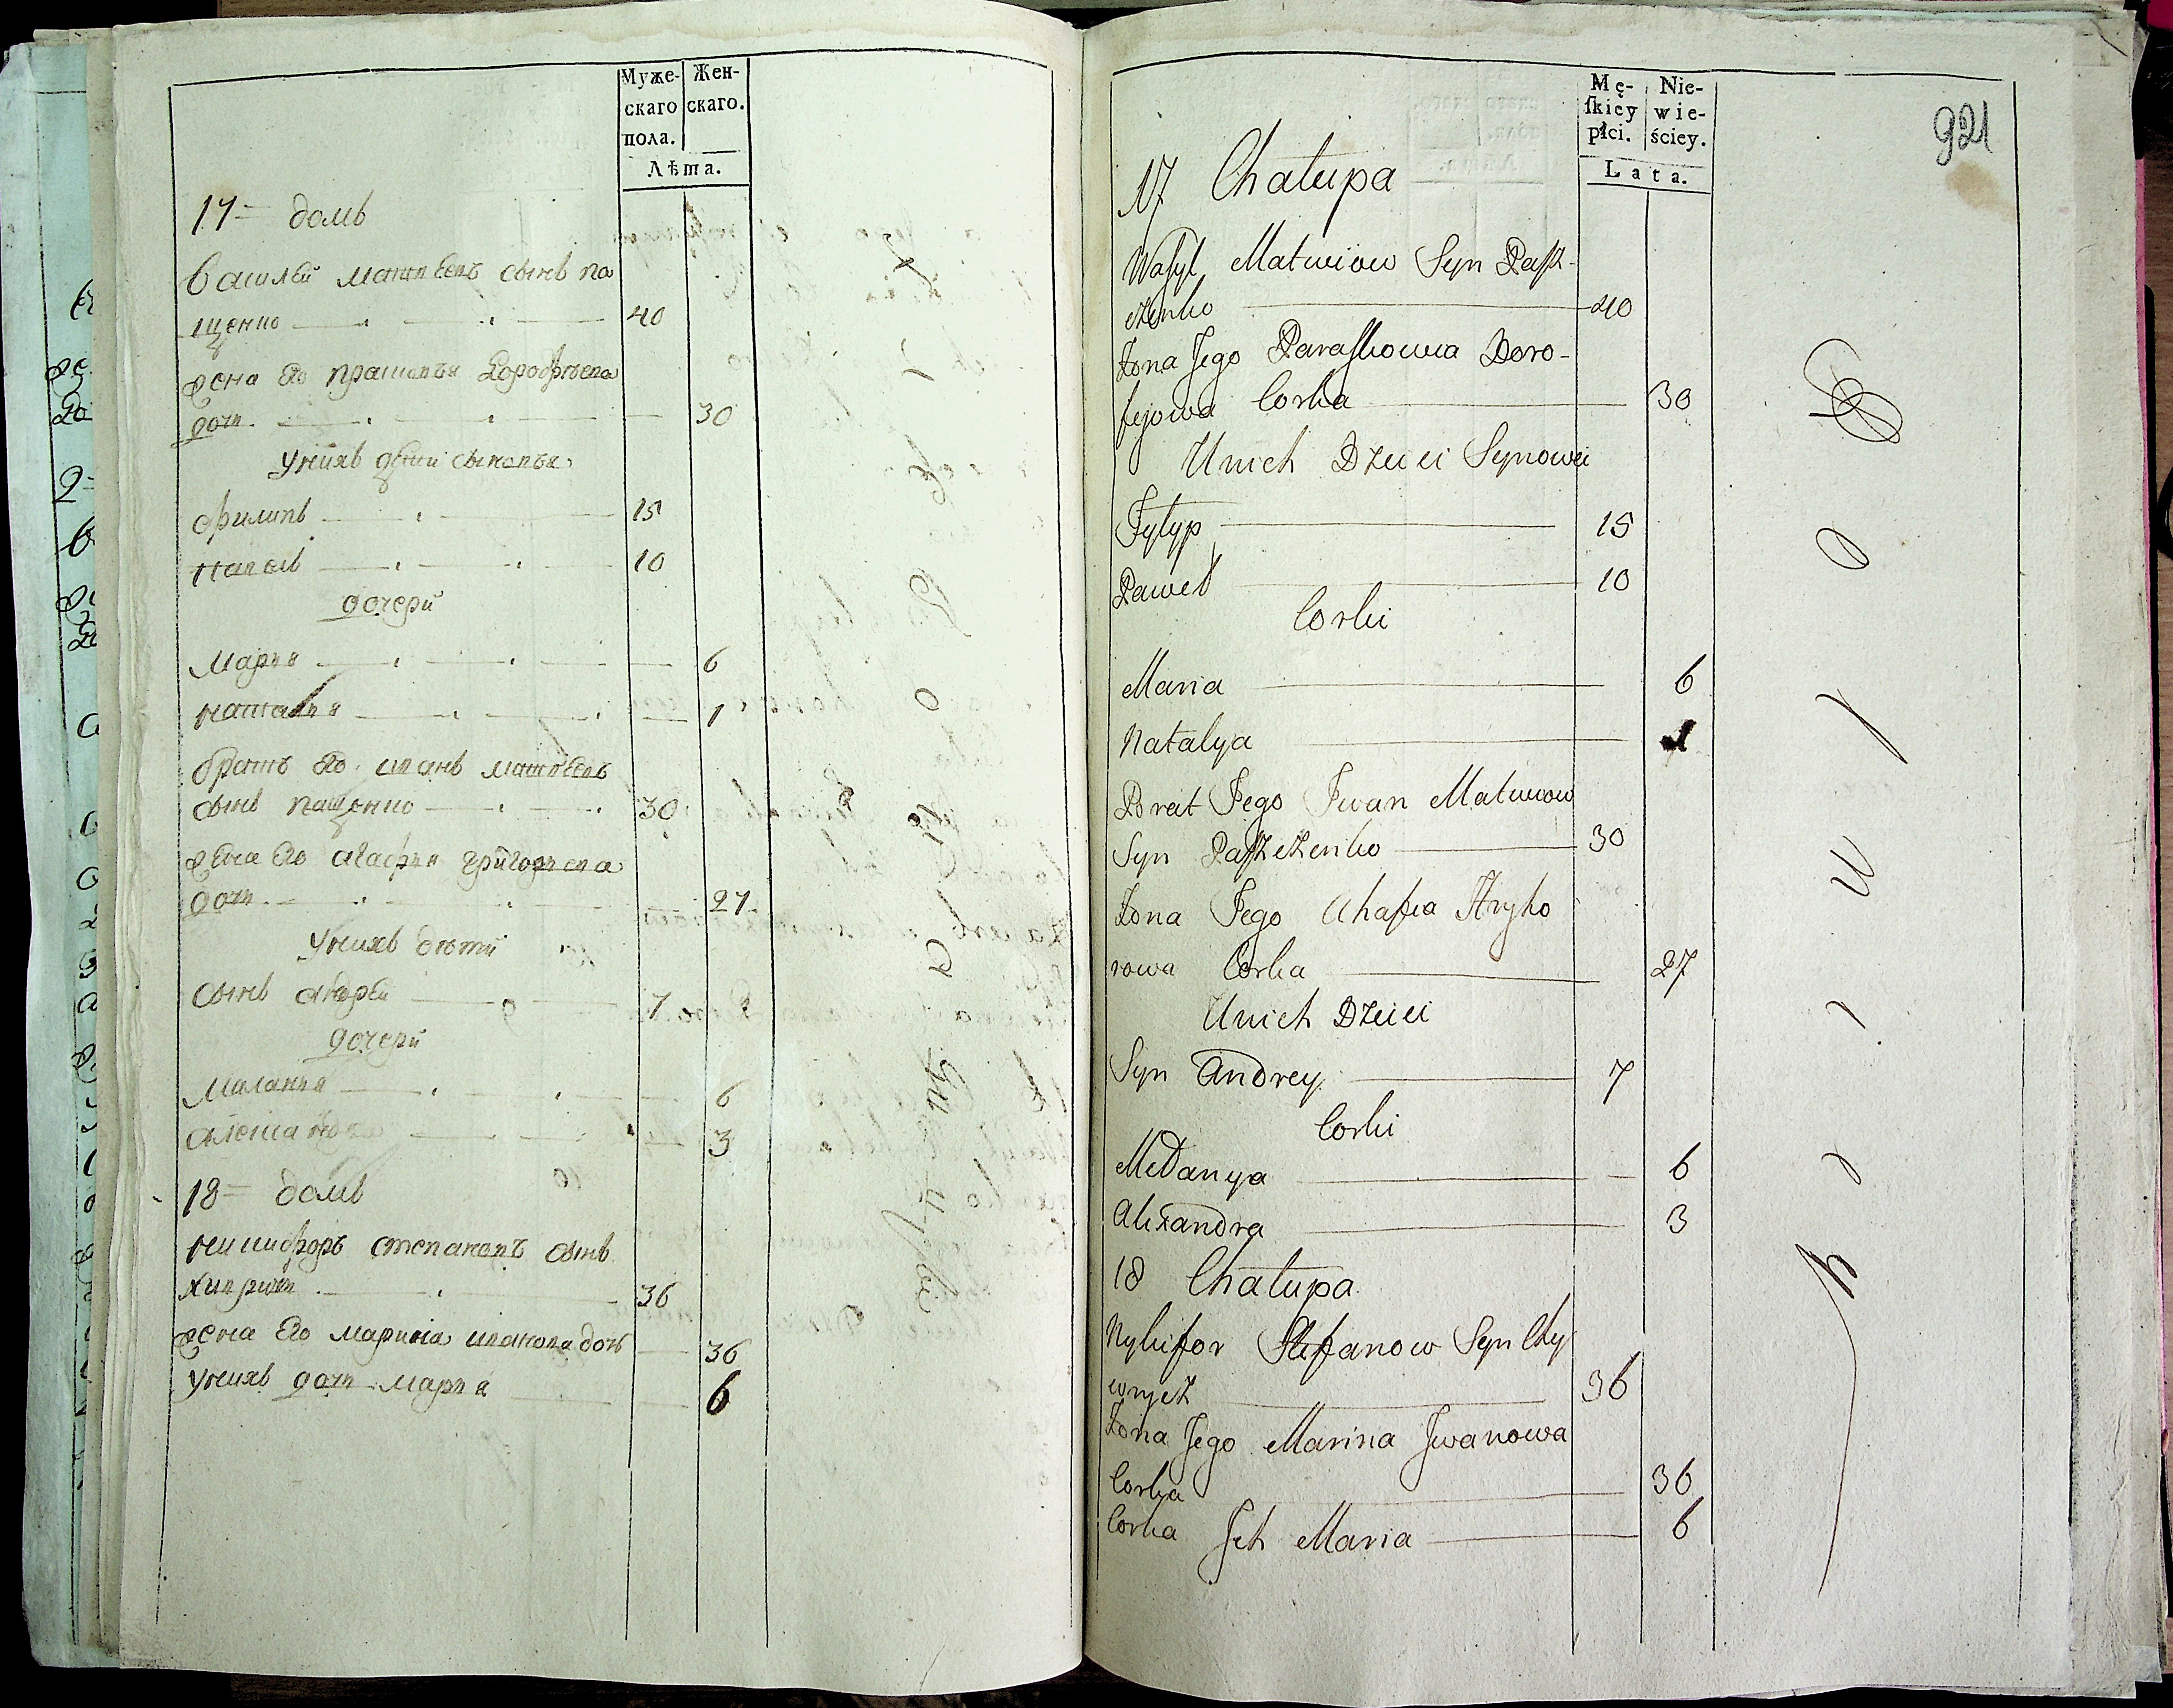 Муже-
скаго
пола.
Жен-
скаго.
Лѣта.
17 = домъ
Василѣй матвѣевъ сынъ па
щенко 40
жена его прасковья Дорофѣева
доч. 30
У нихъ дѣти сыновья
Филипъ 15
Павелъ 10
дочери
Марья 6
наталья 1
братъ его иванъ матвѣевъ
сынъ пащенко 30
жена его агафья григорьева
доч. 27
У нихъ дѣти
сынъ андрѣй 7
дочери
Маланья 6
александра 3
18 = домъ
никифоръ степановъ сынъ
36
жена его марина иванова дочь 36
У нихъ доч марья 6
921
Mę-
ſkiey
płci.
Nie-
wie-
ściey.
Lata.
17 Chałupa
Wasyl Matwiiow Syn Paſz-
czenko 40
Żona Jego Paraſkowia Doro-
fejowa Corka 30
U nich Dzieci Synowei
Fylyp 15
Paweł 10
Corki
Maria 6
Natalya 1
Brat Jego Iwan Matwiow
Syn Paſzczenko 30
Żona Jego Ahafia Hryho
rowa Corka 27
U nich Dzieci
Syn Andrey 7
Corki
Mełanya 6
Alexandra 3
18 Chałupa
Nykifor Stefanow Syn Chy
wrycz 36
Żona Jego Marina Iwanowa
Corka 36
Corka Ich Maria 6